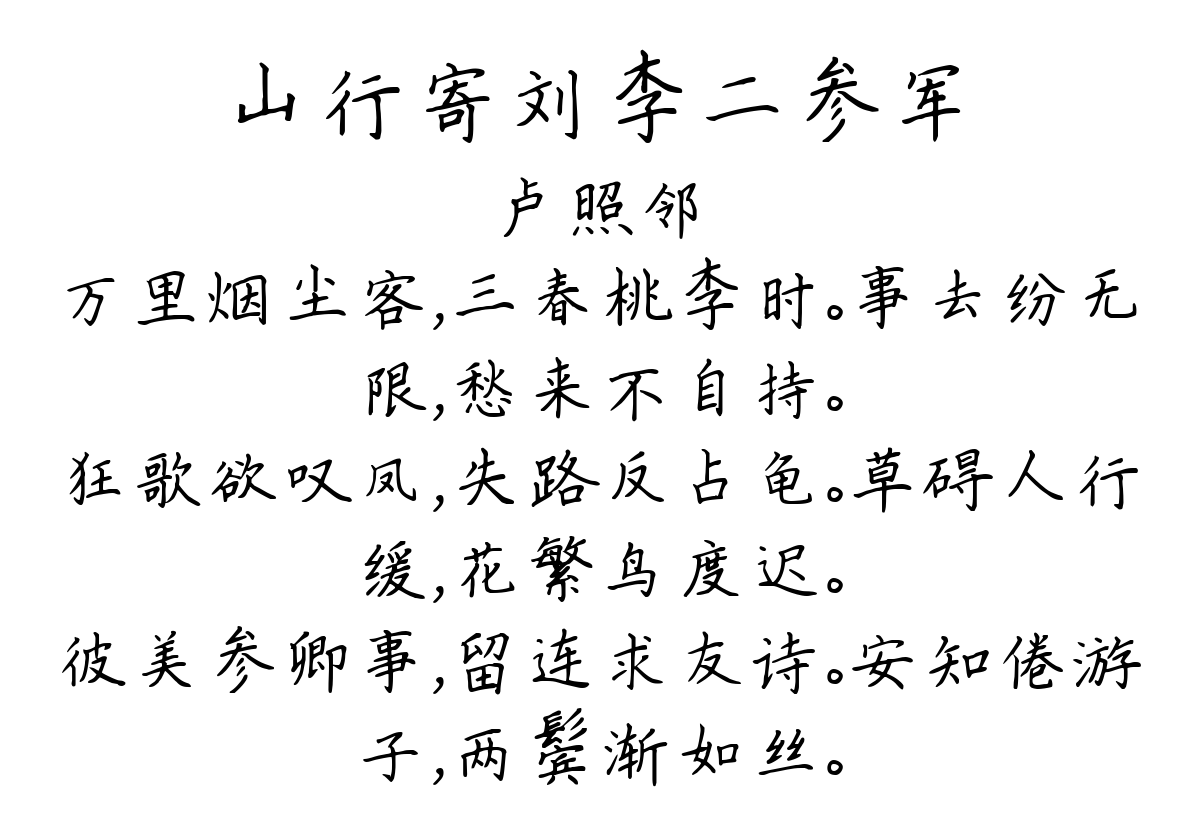 山行寄刘李二参军
卢照邻
万里烟尘客,三春桃李时。事去纷无
限,愁来不自持。
狂歌欲叹凤,失路反占龟。草碍人行
缓,花繁鸟度迟。
彼美参卿事,留连求友诗。安知倦游
子,两鬓渐如丝。